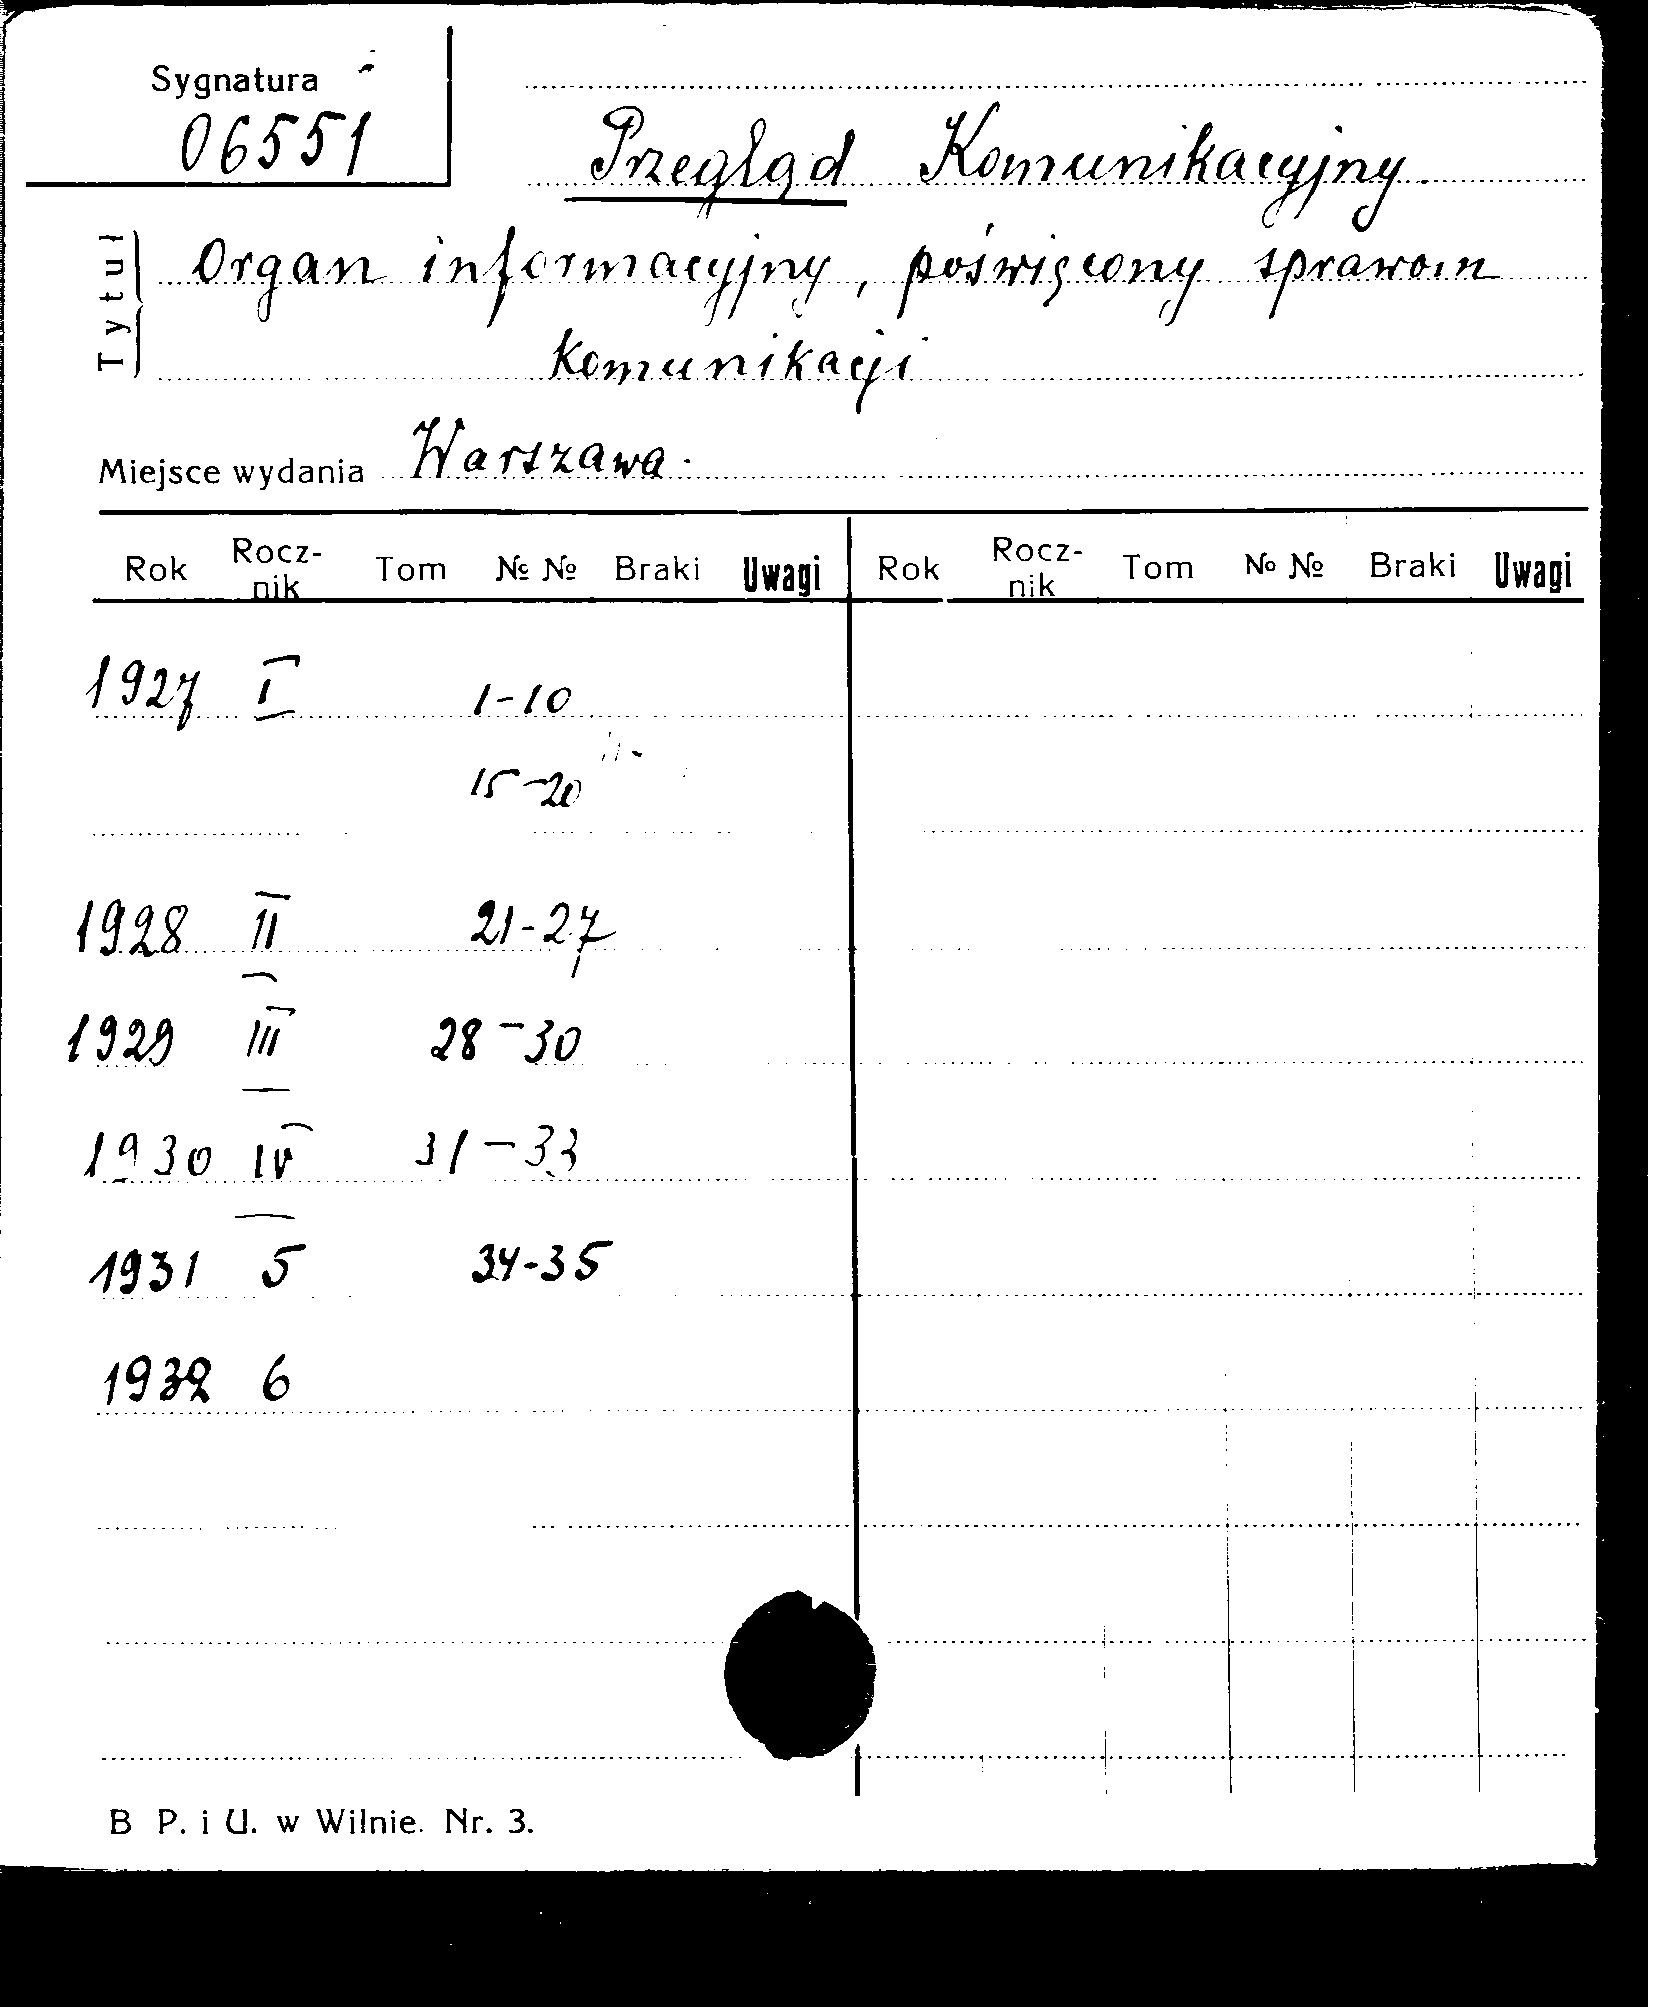 Sygnatura
06551
Przegląd Komunikacyjny.
Tytuł
Organ informacyjny, poświęcony sprawom
Komunikacji
Miejsce wydania Warszawa.
Rok Rocz-nik Tom №№ Braki Uwagi Rok Rocz-nik Tom №№ Braki Uwagi
1927 I 1-10
15-20
1928 II 21-27
1929 III 28-30
1930 IV 31-33
1931 5 34-35
1932 6
B P. i U. w Wilnie. Nr. 3.